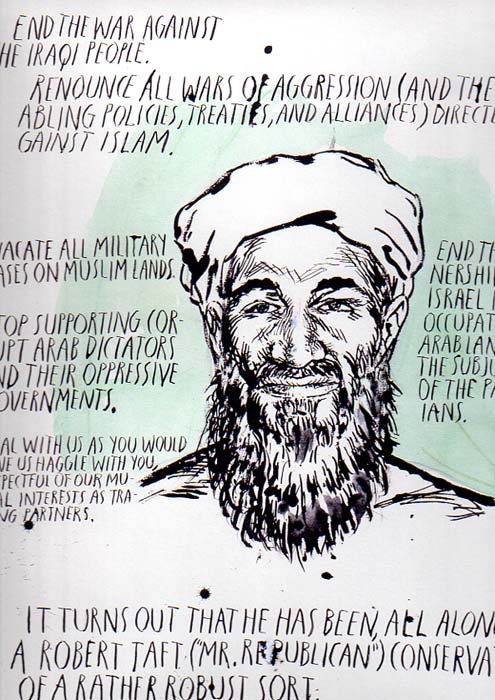 END THE WAR AGAINST
HE IRAQI PEOPLE.
RENOUNCE ALL WARS OF AGGRESSION (AND THE
ABLING POLICIES, TREATIES, AND ALLIANCES) DIRECTE
GAINST ISLAM.
VACATE ALL MILITARY
ASES ON MUSLIM LANDS.
TOP SUPPORTING COR-
UPT ARAB DICTATORS
ND THEIR OPPRESSIVE
OVERNMENTS.
AL WITH US AS YOU WOULD
VE US HAGGLE WITH YOU,
SPECTFUL OF OUR MU-
AL INTERESTS AS TRA-
NG PARTNERS.
END TH
NERSHI
ISRAEL I
OCCUPAT
ARAB LAN
THE SUBJU
OF THE PA
IANS.
IT TURNS OUT THAT HE HAS BEEN, ALL ALON
A ROBERT TAFT ("MR. REPUBLICAN") CONSERVA
OF A RATHER ROBUST SORT.